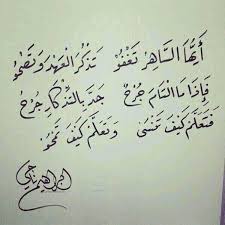 أيها الساهر تغفو تذكر العهد وتصحو
فإذا ما التام جرح جد بالتذكار جرح
فتعلم كيف تنسى وتعلم كيف تمحو
إبراهيم ناجي